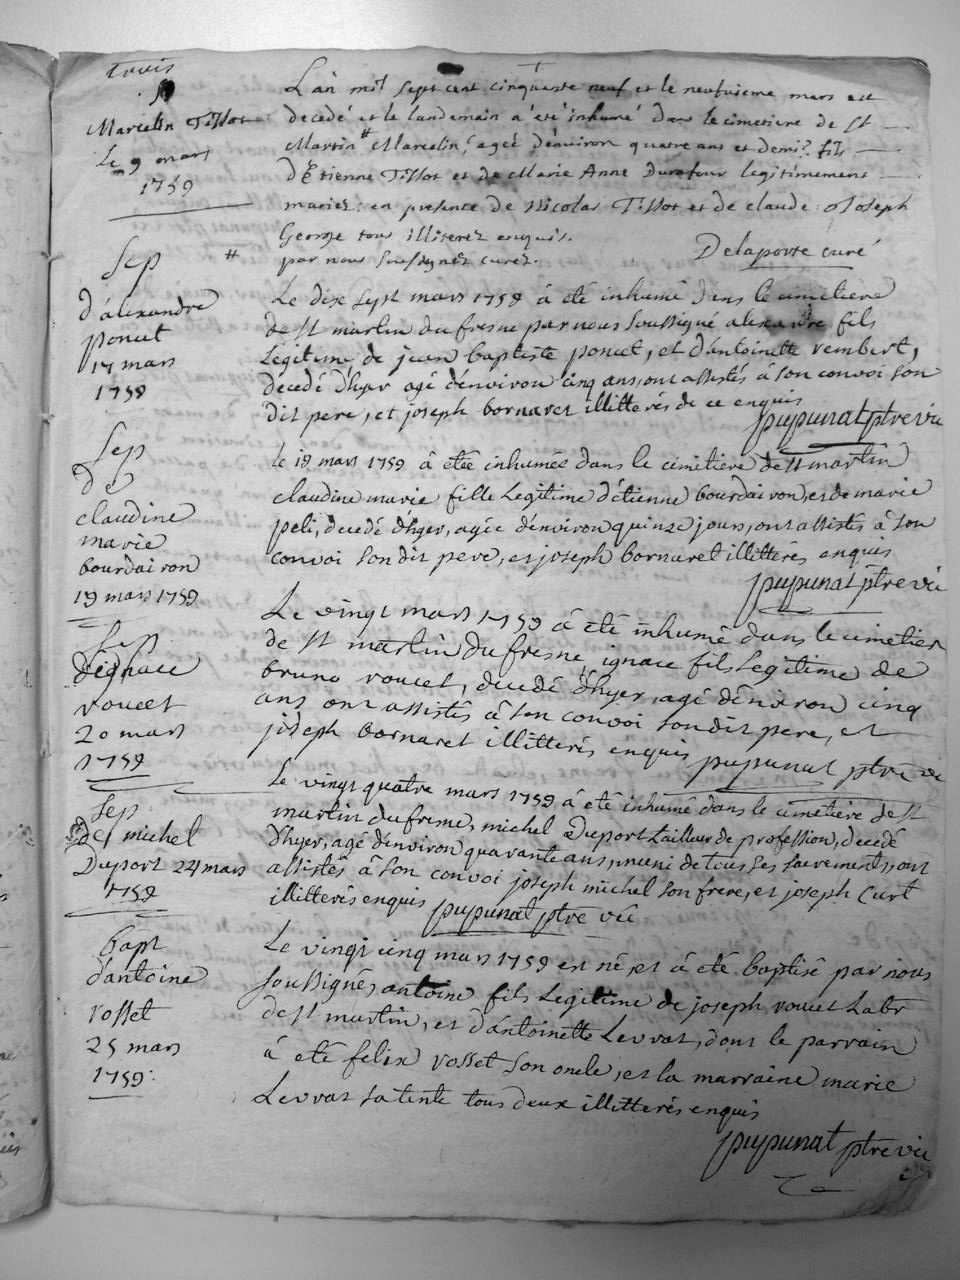 trois
Marcelin Tissot
Le 9 mars
1759
L'an mil sept cent cinquante neuf et le neufvieme mars est
decedé et le landemain à été inhumé dans le cimetiere de St
Martin # Marcelin, ageé d'environ quatre ans et demi, fils
d'Etienne Tissot et de Marie Anne Durafour legitimement
mariez: en presence de Nicolas Tissot et de claude Joseph
George tous illiterez enquis.
# par nous soussignez curez.
Delaporte curé
Sep
d'alexandre
poncet
17 mars
1759
Le dix sept mars 1759 à été inhumé dans le cimetiere
de st martin du fresne par nous soussigné alexandre fils
Legitime de jean baptiste poncet, et d'antoinette rembert,
decedé d'hyer agé d'environ cinq ans, ont assistés à son convoi son
dit pere, et joseph bornaret illitterés de ce enquis
pupunat ptre vic
Sep
de
claudine
marie
bourdairon
19 mars 1759
le 19 mars 1759 à étée inhumée dans le cimetiere de st martin
claudine marie fille Legitime d'étienne bourdairon, et de marie
peli, decedé d'hyer, agée d'environ quinze jours, ont assistés à son
convoi son dit pere, et joseph bornaret illitterés enquis
pupunat ptre vic
Sep
d'ignace
roucet
20 mars
1759
Le vingt mars 1759 à été inhumé dans le cimetier
de st martin du fresne ignace fils Legitime de
bruno roucet, decedé d'hyer, agé d'environ cinq
ans ont assistés à son convoi son dit pere, et
joseph bornaret illitterés enquis pupunat ptre vic
Sep
de michel
Duport 24 mars
1759
Le vingt quatre mars 1759 à été inhumé dans le cimetiere de st
martin du fresne, michel Duport tailleur de profession, decedé
d'hyer, agé d'environ quarante ans, muni de tous ses sacrements, ont
assistés à son convoi joseph michel son frere, et joseph Curt
illitterés enquis pupunat ptre vic
bapt
d'antoine
rosset
25 mars
1759
Le vingt cinq mars 1759 est né, et à été baptisé par nous
soussignés antoine fils Legitime de joseph roucet Labr
de st martin, et d'antoinette Levrat, dont le parrain
à été felix rosset son oncle, et la marraine marie
Levrat sa tente tous deux illitterés enquis
pupunat ptre vic